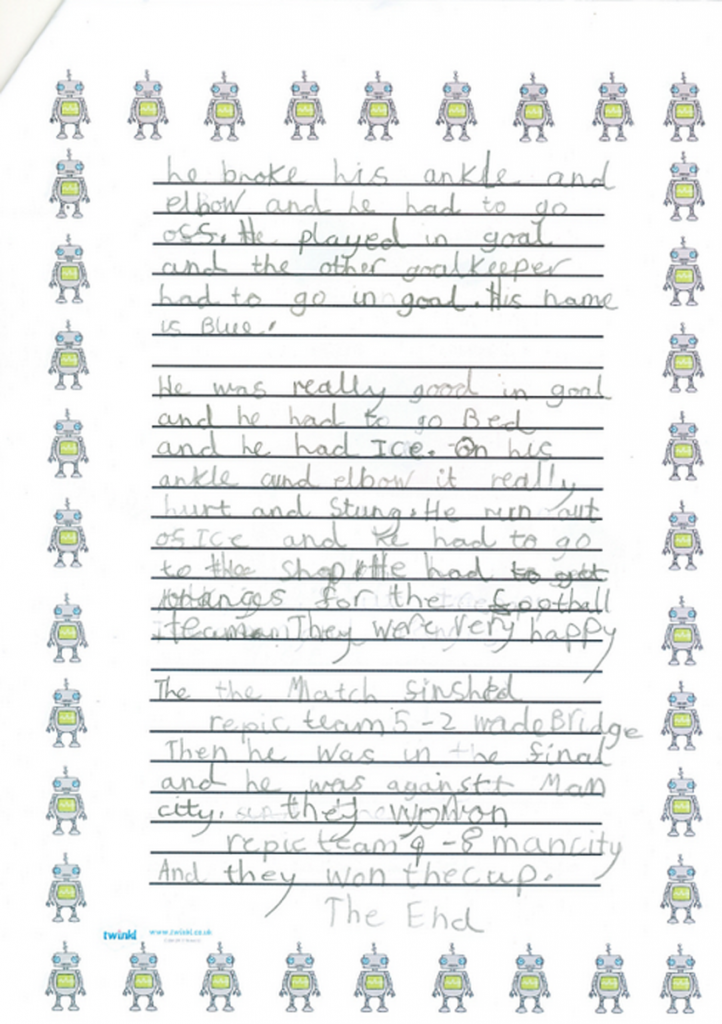 he broke his ankle and
elbow and he had to go
oss. He played in goal
and the other goalkeeper
had to go in goal. His name
is Blue.
He was really good in goal
and he had to go Bed
and he had Ice. On his
ankle and elbow it really
hurt and Stung. He run out
os Ice and he had to go
to the shop He had to get
oranges for the football
team. They were very happy
The the Match sinshed
repic team 5-2 wadeBridge
Then he was in the final
and he was against Man
city. they won
repic team 9-8 mancity
And they won the cup.
The End
twinkl www.twinkl.co.uk